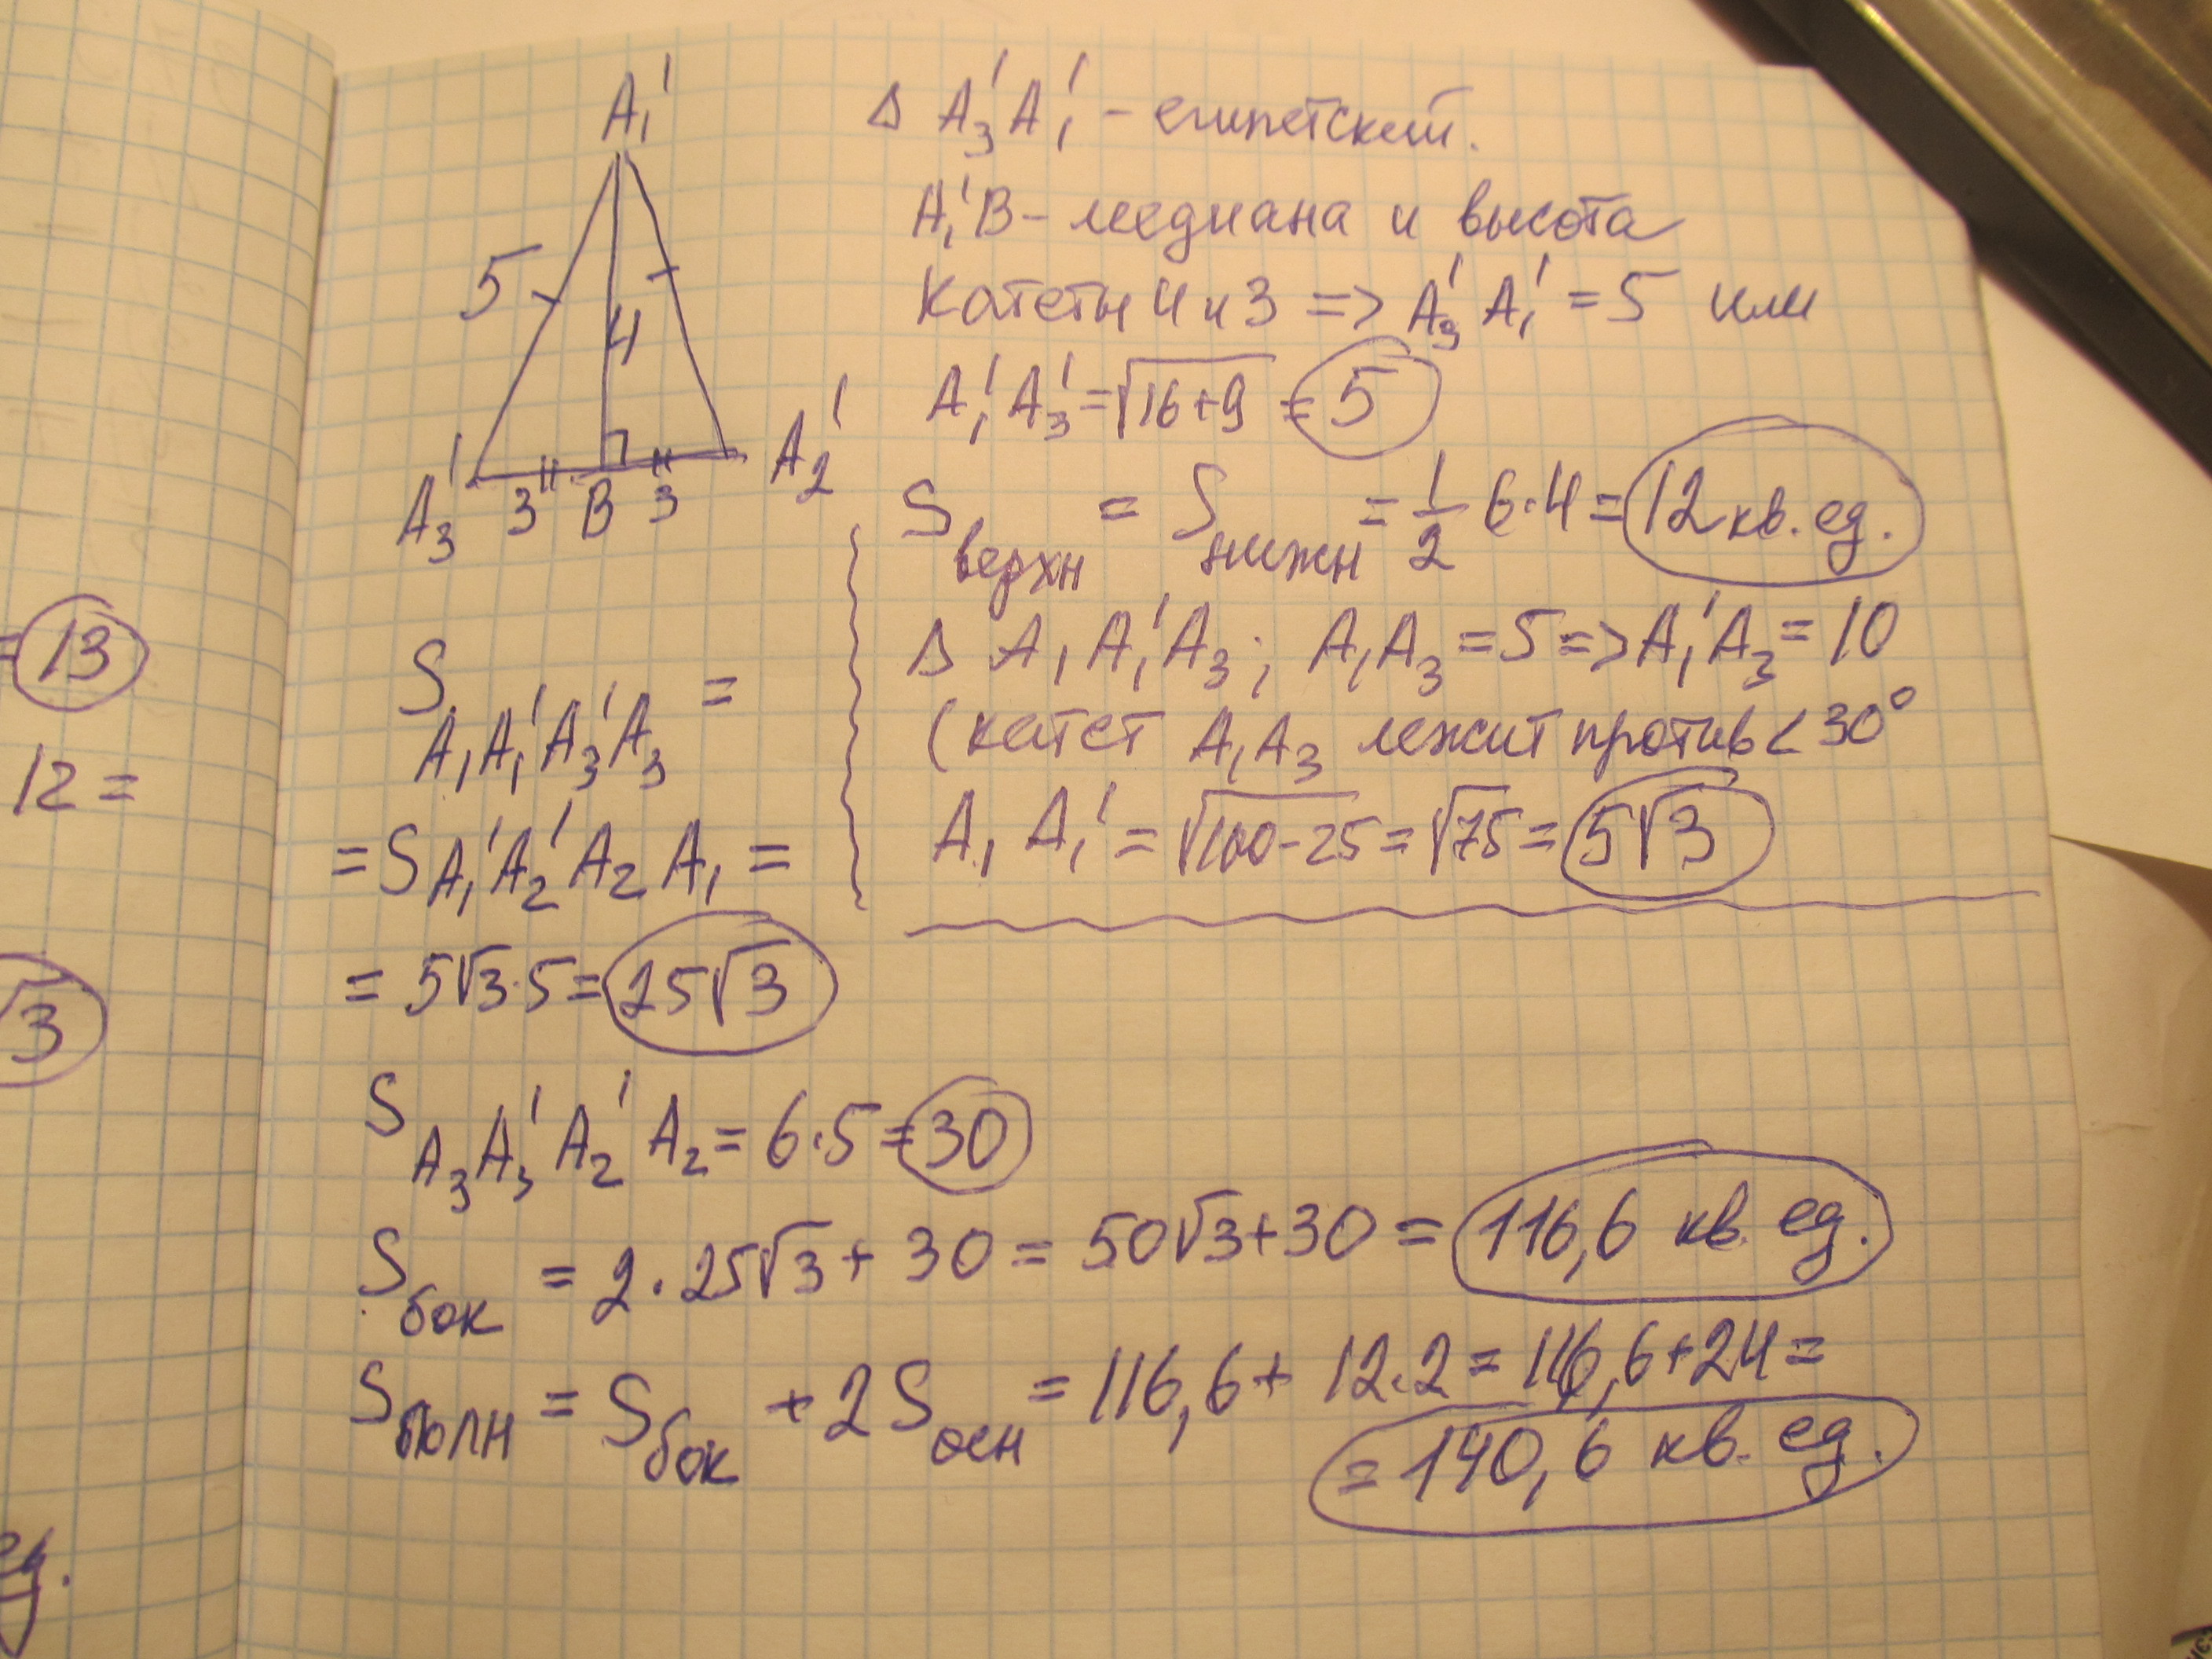 A₁'
5
4
A₃' 3 B 3 A₂'
Δ A₃'A₁' - египетский.
A₁'B - медиана и высота
Катеты 4 и 3 => A₃'A₁' = 5 или
A₁'A₃' = √16+9 = 5
Sверхн = Sнижн = 1/2 6·4 = 12 кв. ед.
Δ A₁A₁'A₃; A₁A₃ = 5 => A₁'A₃ = 10
(катет A₁A₃ лежит против < 30°
A₁A₁' = √100-25 = √75 = 5√3
S A₁A₁'A₃'A₃ =
= S A₁'A₂'A₂A₁ =
= 5√3·5 = 25√3
S A₃A₃'A₂'A₂ = 6·5 = 30
Sбок = 2·25√3 + 30 = 50√3 + 30 = 116,6 кв. ед.
Sполн = Sбок + 2Sосн = 116,6 + 12·2 = 116,6 + 24 =
= 140,6 кв. ед.
= 13
12 =
√3